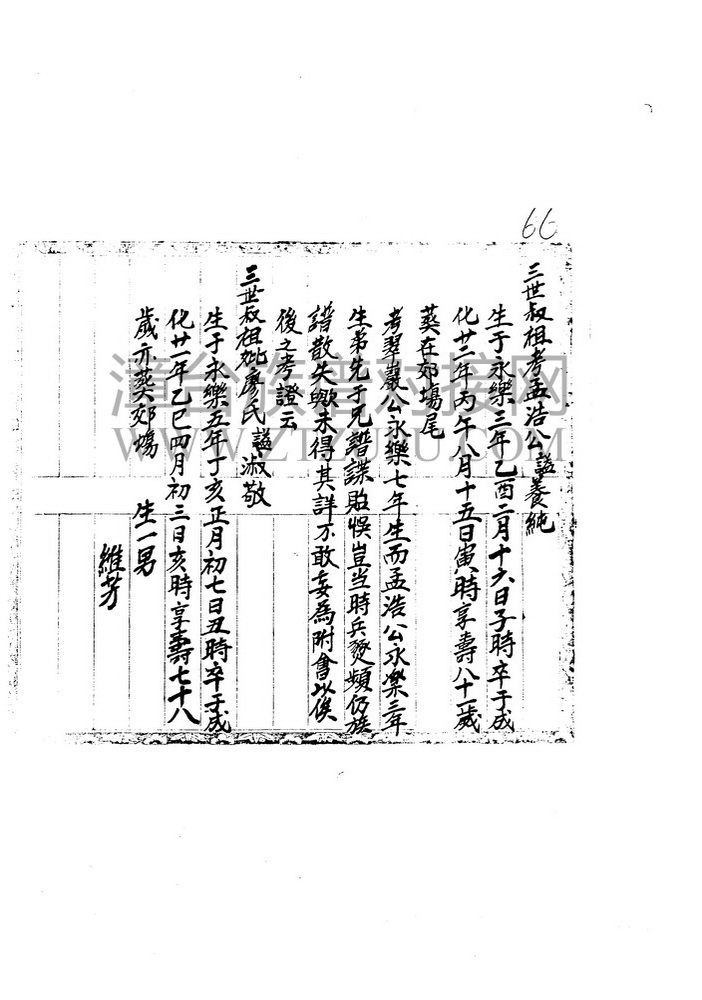 66
三世叔祖考孟浩公謚養純
生于永樂三年乙酉二月十六日子時卒于成
化廿二年丙午八月十五日寅時享壽八十一歲
葬在郊塲尾
考翠巖公永樂七年生而孟浩公永樂三年
生弟先于兄譜諜貽悞豈当時兵燹頻仍族
譜散失歟未得其詳不敢妄為附會以俟
後之考證云
三世叔祖妣廖氏謚淑敬
生于永樂五年丁亥正月初七日丑時卒于成
化廿一年乙巳四月初三日亥時享壽七十八
歲亦葬郊塲 生一男
維芳
漳台族谱对接网
WWW.ZTZUPU.COM